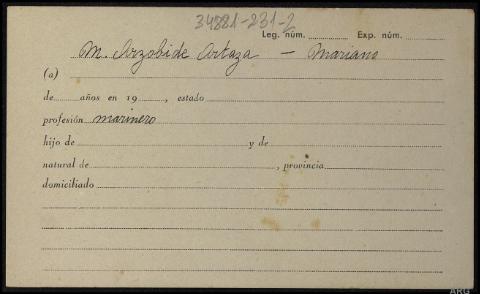 34881-231-2
Leg. núm. Exp. núm.
M. Arzobide Artaza — Mariano
(a)
de años en 19 , estado
profesión marinero
hijo de y de
natural de , provincia
domiciliado
ARG